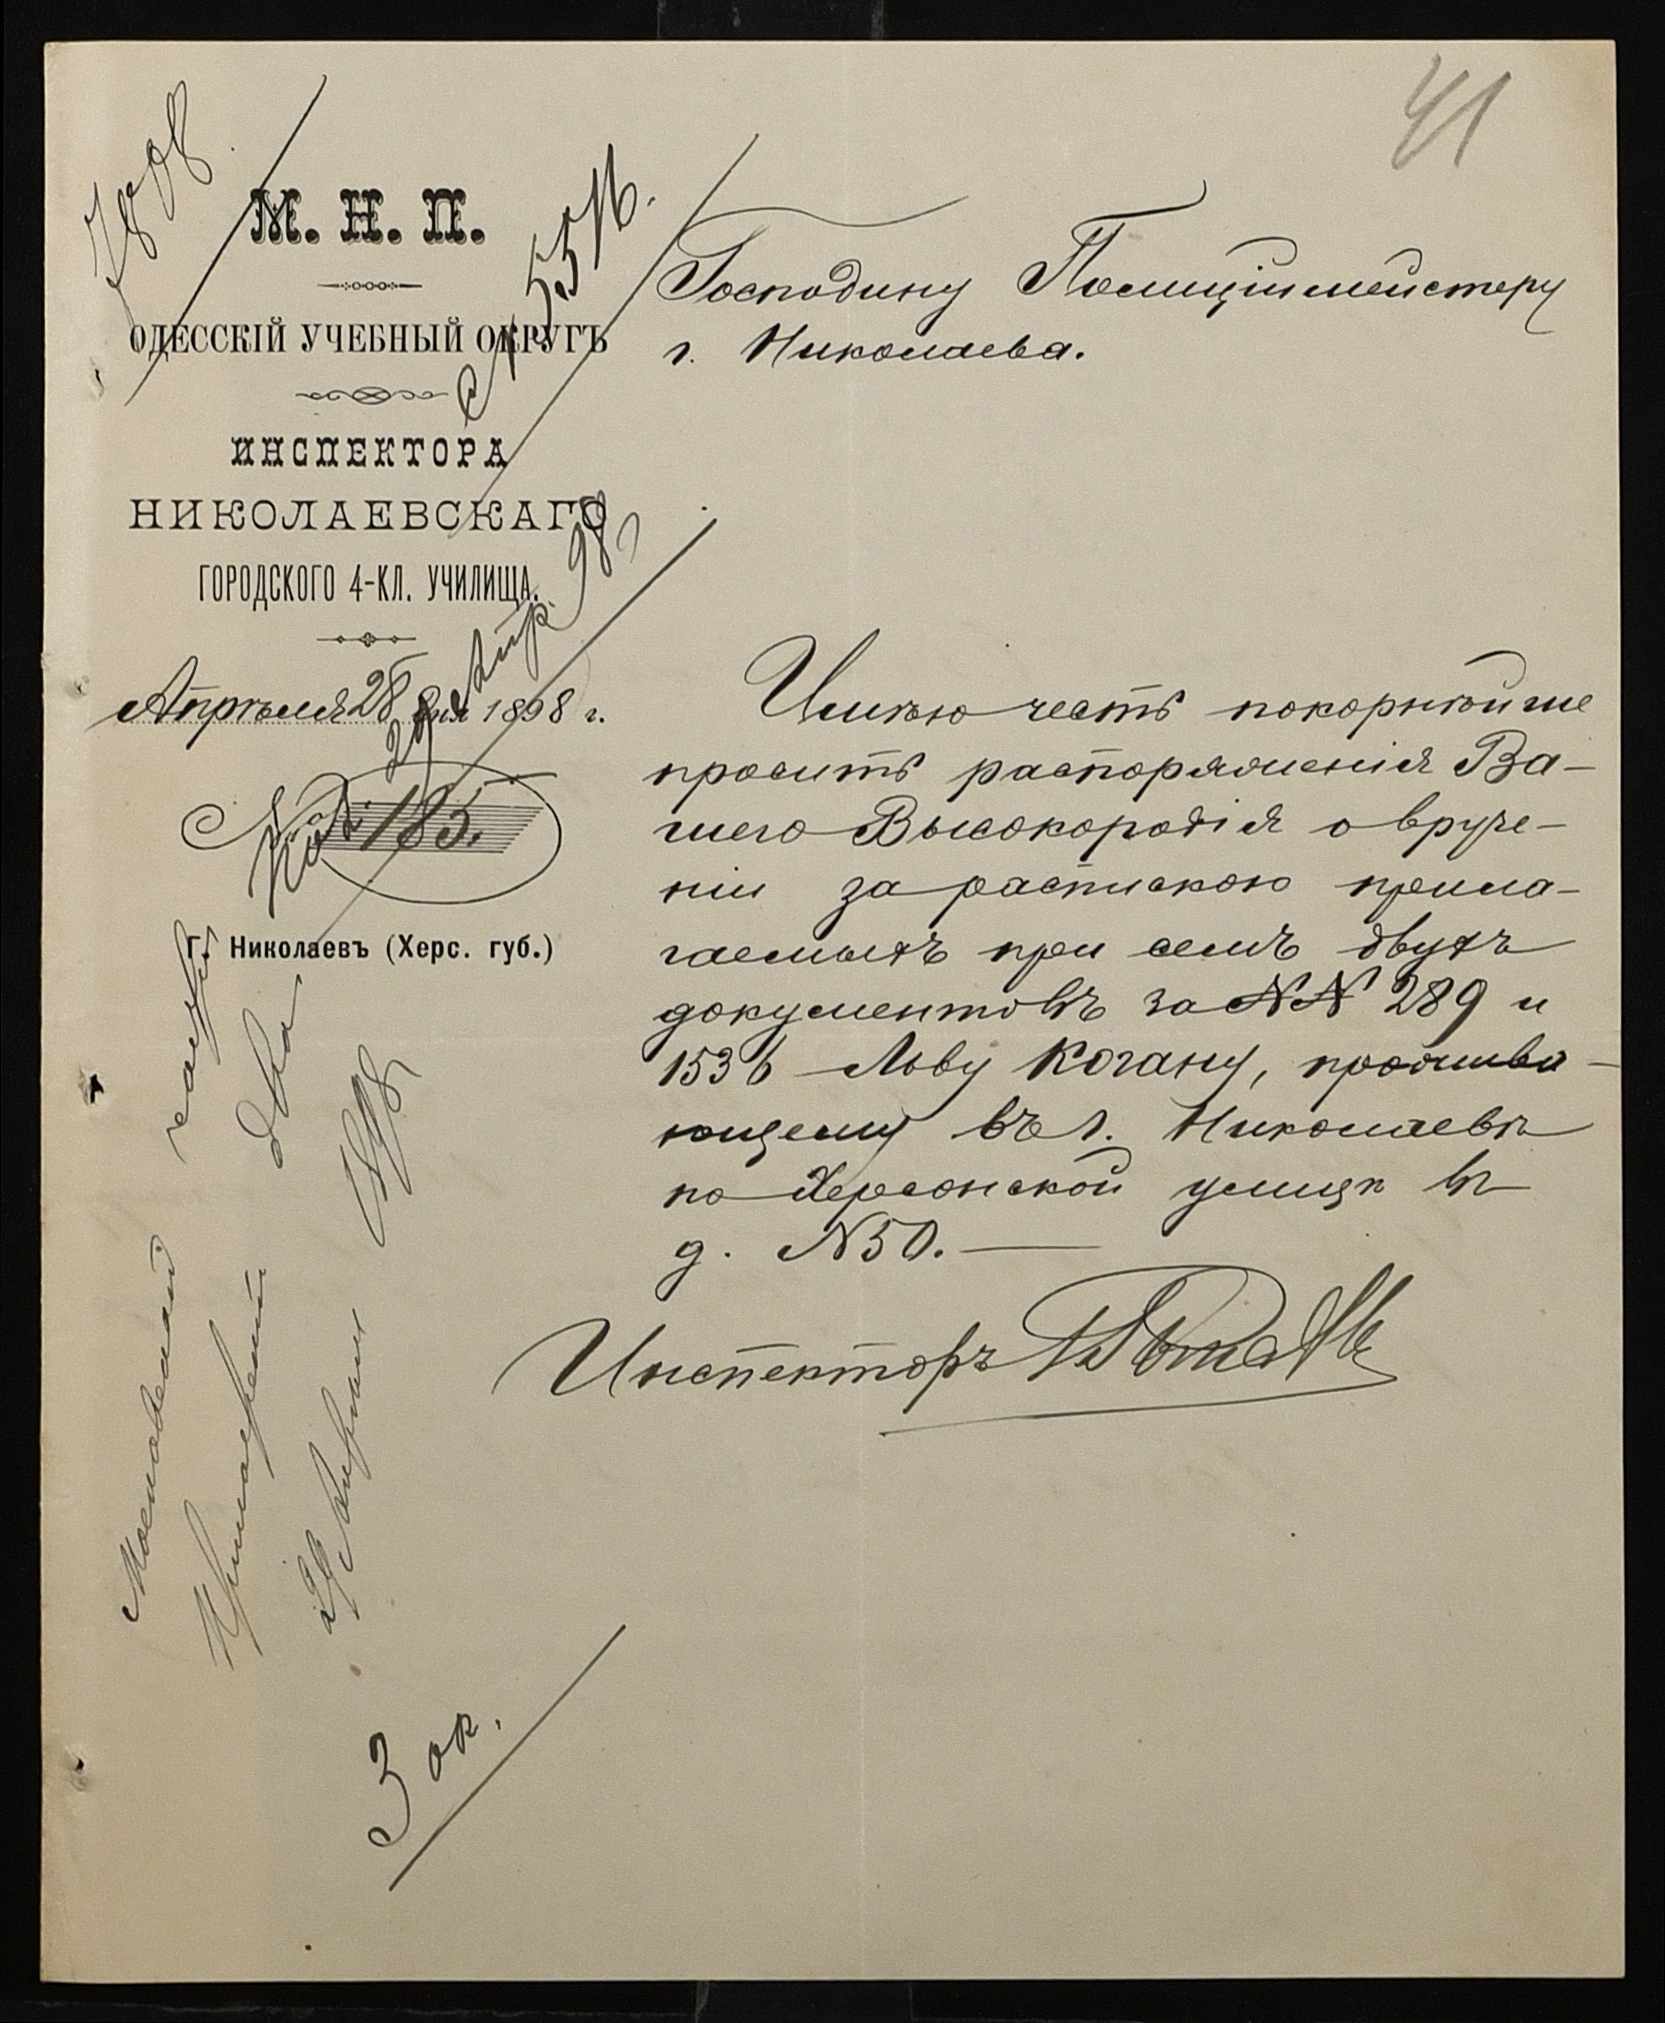 41
М. Н. П.
ОДЕССКІЙ УЧЕБНЫЙ ОКРУГЪ
ИНСПЕКТОРА
НИКОЛАЕВСКАГО
ГОРОДСКОГО 4-КЛ. УЧИЛИЩА.
Апрѣля 28 дня 1898 г.
№ 185.
Г. Николаевъ (Херс. губ.)
29 Апр. 98
Господину Полиціймейстеру
г. Николаева.
Имѣю честь покорнѣйше
просить распоряженія Ва-
шего Высокородія о вруче-
ніи за распискою прила-
гаемыхъ при семъ двухъ
документовъ за №№ 289 и
1536 Льву Когану, прожива-
ющему въ г. Николаевѣ
по Херсонской улицѣ въ
д. №50.
Инспекторъ
Московской части
два
29 Апрѣля 1898
3 ок.